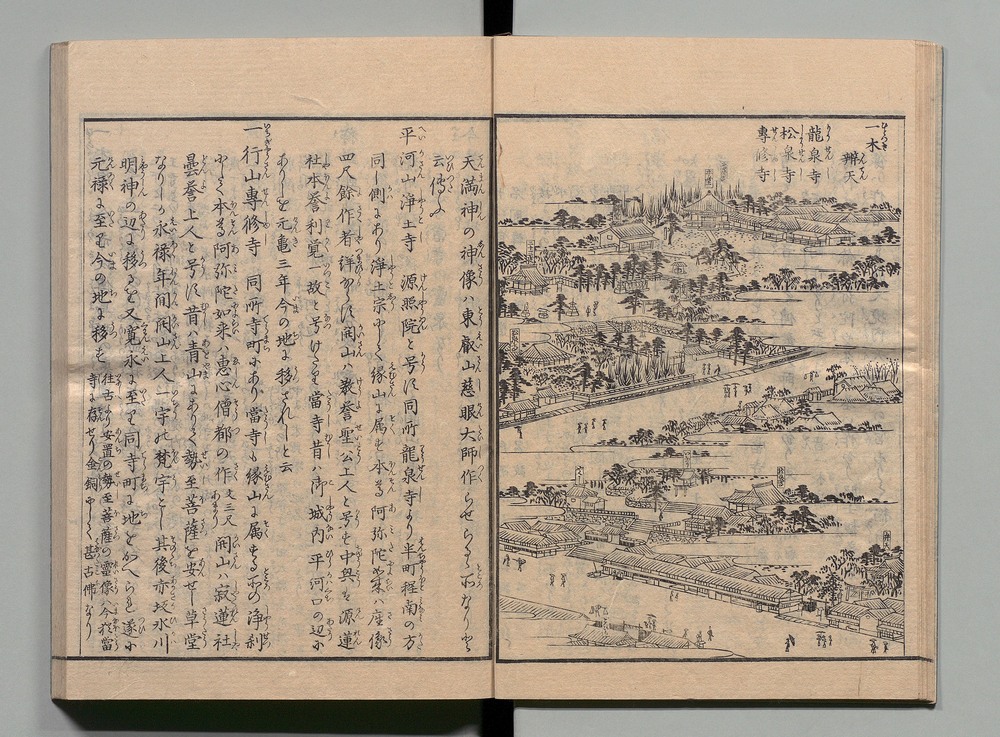 一木
辨天
龍泉寺
松泉寺
專修寺
天満神の神像ハ東叡山慈眼大師作らせらるゝ所なりと
云傳ふ
平河山淨土寺 源照院と号す同所龍泉寺より半町程南の方
同し側にあり浄土宗にて縁山に属す本尊阿弥陀如来ハ座像
四尺餘作者詳ならす開山ハ教誉聖公上人と号す中興を源蓮
社本誉利覚一故と号けり當寺昔ハ御城内平河口の辺に
ありしを元亀三年今の地に移されしと云
一行山專修寺 同所寺町にあり當寺も縁山に属する所の浄刹
にて本尊阿弥陀如来ハ惠心僧都の作丈三尺開山ハ寂蓮社
曇誉上人と号す昔青山にありて勢至菩薩を安せし草堂
なりしか永禄年間開山上人一宇の梵宇とし其後赤坂氷川
明神の辺に移るを又寛永に至り同寺町に地をかへられ遂に
元禄に至り今の地に移る往古より安置の勢至菩薩の霊像ハ今猶當
寺に存せり金銅にして甚古佛なり